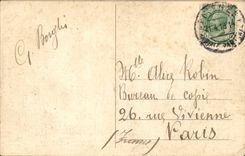 G Borghi
Mlle Alex Robin
Bureau de copie
26, rue Vivienne
Paris
(France)